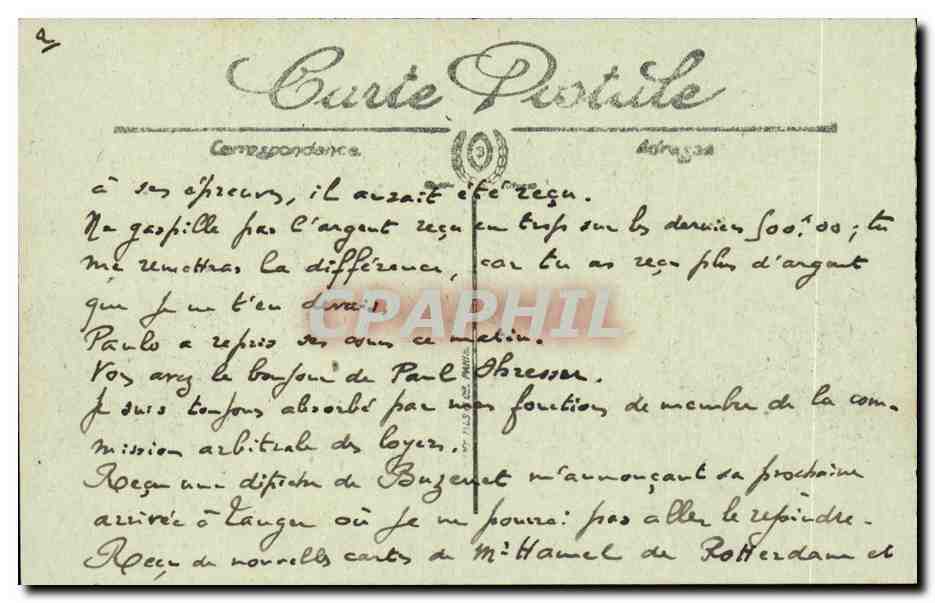 2/
Carte Postale
Correspondance
Adresse
3
à ses épreuves, il aurait été reçu.
Ne gaspille pas l'argent reçu en trop sur les derniers 500f.00; tu
me remettras la différence, car tu as reçu plus d'argent
que je ne t'en devais.
CPAPHIL
Paulo a repris ses cours ce matin.
Vous avez le bonjour de Paul
Je suis toujours absorbé par mes fonctions de membre de la com-
mission arbitrale des loyers.
Reçu une dépêche de Buzenet m'annonçant sa prochaine
arrivée à Tanger où je ne pourrai pas aller le rejoindre.
Reçu de nouvelles cartes de Mr Hamel de Rotterdam et